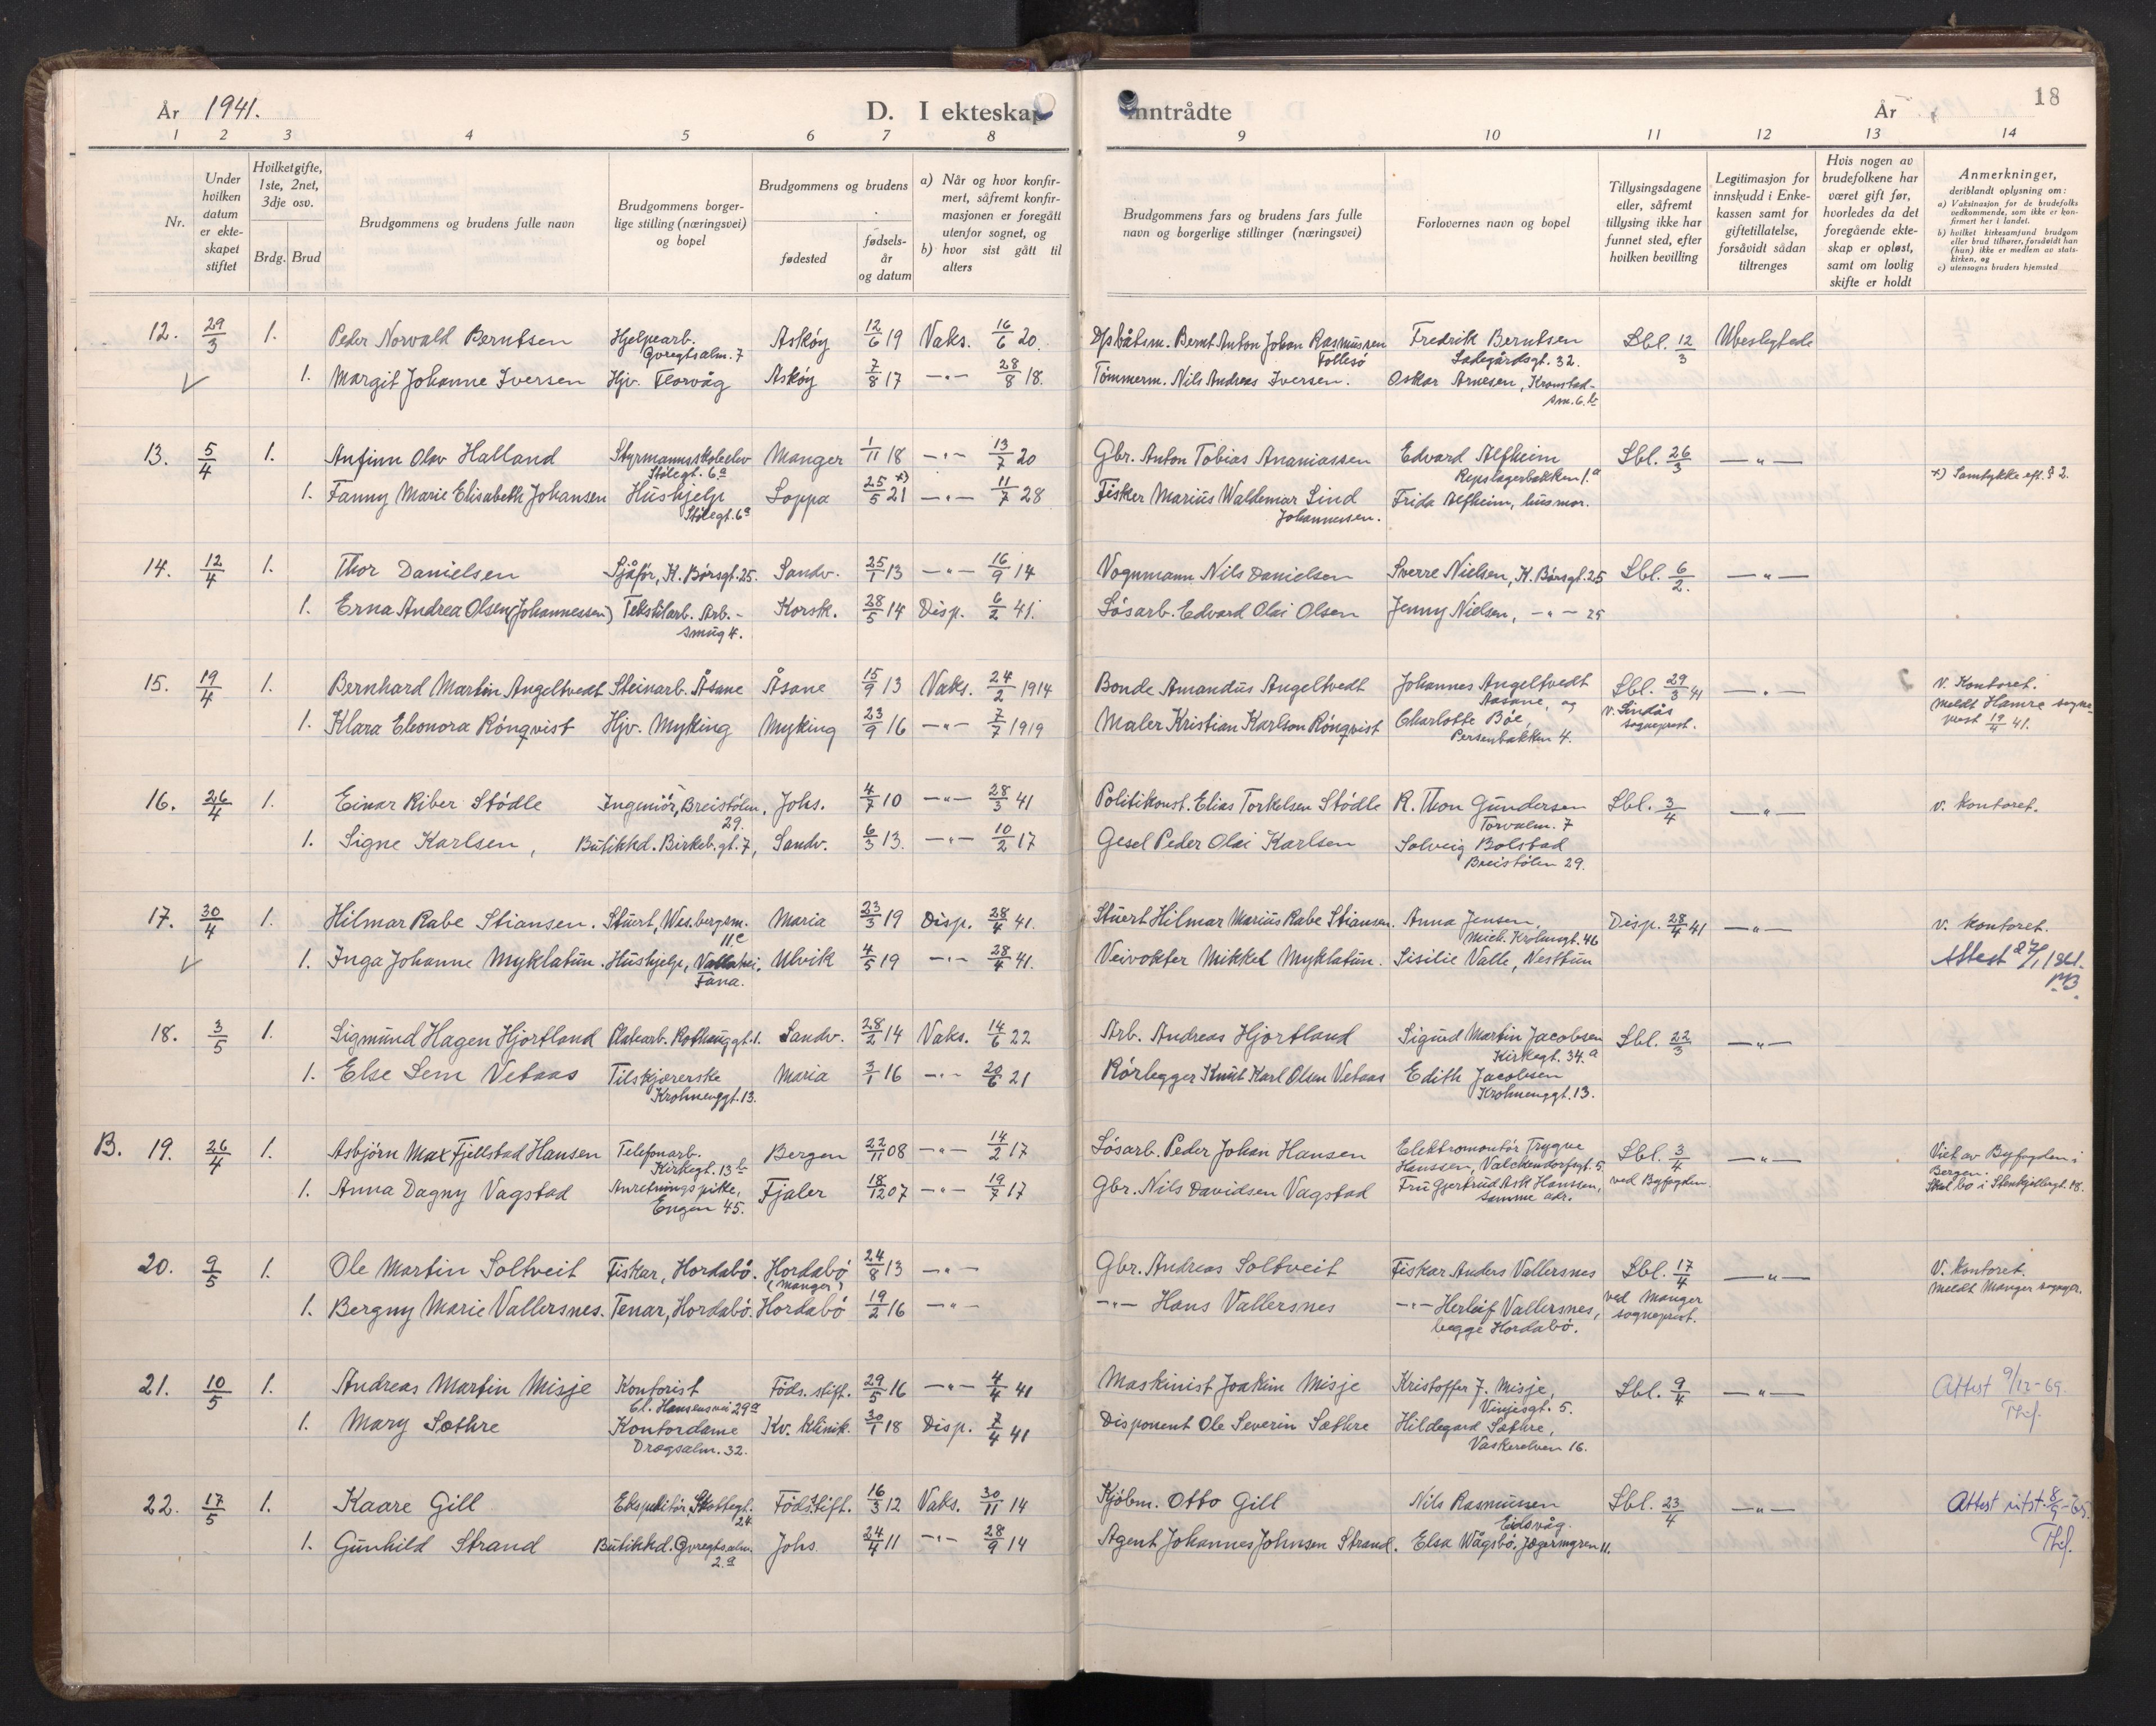 År 1941.
D. I ekteskap
inntrådte
År
18
1 2 3 4 5 6 7 8 9 10 11 12 13 14
Nr.
Under hvilken datum er ekteskapet stiftet
Hvilket gifte, 1ste, 2net, 3dje osv.
Brdg. Brud
Brudgommens og brudens fulle navn
Brudgommens borgerlige stilling (næringsvei) og bopel
Brudgommens og brudens
fødested
fødselsår og datum
a) Når og hvor konfirmert, såfremt konfirmasjonen er foregått utenfor sognet, og
b) hvor sist gått til alters
Brudgommens fars og brudens fars fulle navn og borgerlige stillinger (næringsvei)
Forlovernes navn og bopel
Tillysingsdagene eller, såfremt tillysing ikke har funnet sted, efter hvilken bevilling
Legitimasjon for innskudd i Enkekassen samt for giftetillatelse, forsåvidt sådan tiltrenges
Hvis nogen av brudefolkene har været gift før, hvorledes da det foregående ekteskap er opløst, samt om lovlig skifte er holdt
Anmerkninger, deriblandt oplysning om:
a) Vaksinasjon for de brudefolks vedkommende, som ikke er konfirmert her i landet.
b) hvilket kirkesamfund brudgom eller brud tilhører, forsåvidt han (hun) ikke er medlem av statskirken, og
c) utensogns bruders hjemsted
12. 29/3 1. Peder Norvald Berntsen Hjelpearb. Askøy 12/6 19 Vaks. 16/6 20. D/pbåtsm. Bernt Anton Johan Rasmussen Fredrik Berntsen Lbl. 12/3 Ubeslegtede
Øvregtsalm. 7 Follesø Ladegårdsgt. 32.
1. Margit Johanne Iversen Hjv. Florvåg Askøy 7/8 17 -"- 28/8 18. Tømmerm. Nils Andreas Iversen. Oskar Arnesen, Kronstad-
sm. 6.b
13. 5/4 1. Anfinn Olav Halland Styrmannsskoleelev Manger 1/11 18 -"- 13/7 20 Gbr. Anton Tobias Ananiassen Edvard Alfheim Lbl. 26/3 -"-
Stølegt. 6a Repslagerbakken 1.a
x) Samtykke eft. § 2.
1. Fanny Marie Elisabeth Johansen Hushjelp Loppa 25/5 21 x) -"- 11/7 28 Fisker Marius Waldemar Lind Frida Alfheim, husmor.
Stølegt. 6a Johannessen.
14. 12/4 1. Thor Danielsen Sjåfør, K. Børsgt. 25. Sandv. 25/1 13 -"- 16/9 14 Vognmann Nils Danielsen Sverre Nielsen, K. Børsgt. 25 Lbl. 6/2. -"-
1. Erna Andrea Olsen (Johannessen) Tekstilarb. Arb.- Korsk. 28/5 14 Disp. 6/2 41. Løsarb. Edvard Olai Olsen Jenny Nielsen, -"- 25
smug 4.
15. 19/4 1. Bernhard Martin Angeltvedt Steinarb. Åsane Åsane 15/9 13 Vaks. 24/2 1914 Bonde Amandus Angeltvedt Johannes Angeltvedt Lbl. 29/3 41 -"- v. Kontoret.
Aasane, og v. Lindås sogneprest. meldt Hamre sogne-
1. Klara Eleonora Rönqvist Hjv. Myking Myking 23/9 16 -"- 7/7 1919 Maler Kristian Karlson Rönqvist Charlotte Bøe, prest 19/4 41.
Persenbakken 4.
16. 26/4 1. Einar Riber Stødle Ingeniør, Breistølen, Johs. 4/7 10 -"- 28/3 41 Politikonst. Elias Torkelsen Stødle R. Thon Gundersen Lbl. 3/4 -"- v. kontoret.
29. Torvalm. 7
1. Signe Karlsen, Butikkd. Birkeb. gt. 7, Sandv. 6/3 13. -"- 10/2 17 Gesel Peder Olai Karlsen Solveig Bolstad
Breistølen 29.
17. 30/4 1. Hilmar Rabe Stiansen. Stuert, Wesbergsm. Maria 23/3 19 Disp. 28/4 41. Stuert Hilmar Marius Rabe Stiansen. Anna Jensen, Disp. 28/4 41 -"- v. kontoret.
11c Mich. Krohnsgt. 46
1. Inga Johanne Myklatun. Hushjelp, Vallahei, Ulvik 4/5 19 -"- 28/4 41. Veivokter Mikkel Myklatun. Sisilie Valle, Nesttun Attest 27/1 1961.
Fana.
18. 3/5 1. Sigmund Hagen Hjortland Platearb. Rothauggt. 1. Sandv. 28/2 14 Vaks. 14/6 22 Arb. Andreas Hjortland Sigurd Martin Jacobsen Lbl. 22/3 -"-
Kirkegt. 34.a
1. Else Sem Vetaas Tilskjærerske Maria 3/1 16 -"- 20/6 21 Rørlegger Knut Karl Olsen Vetaas Edith Jacobsen
Krohnenggt. 13. Krohnenggt. 13.
B. 19. 26/4 1. Asbjørn Max Fjellstad Hansen Telefonarb. Bergen 22/11 08 -"- 14/2 17 Løsarb. Peder Johan Hansen Elektromontør Trygve Lbl. 3/4 -"- Viet av Byfogden i
Kirkegt. 13b Hanssen, Valckendorfsgt. 5. Bergen.
1. Anna Dagny Vagstad Anretningspike, Fjaler 18/12 07 -"- 19/7 17 Gbr. Nils Davidsen Vagstad Fru Gjertrud Ask Hanssen, ved Byfogden. Skal bo i Stenkjellergt. 18.
Engen 45. samme adr.
20. 9/5 1. Ole Martin Soltveit Fiskar, Hordabø. Hordabø 24/8 13 -"- Gbr. Andreas Soltveit Fiskar Anders Vallersnes Lbl. 17/4 -"- V. Kontoret.
(Manger) ved Manger sogneprest. Meldt Manger sogepr.
1. Bergny Marie Vallersnes. Tenar, Hordabø. Hordabø 19/2 16 -"- -"- Hans Vallersnes -"- Herleif Vallersnes,
begge Hordabø.
21. 10/5 1. Andreas Martin Misje Kontorist Føds. stift. 29/5 16 -"- 4/4 41 Maskinist Joakim Misje Kristoffer J. Misje, Lbl. 9/4 -"- Attest 9/12-69.
Cl. Hansensvei 29a Vinjesgt. 5. Thf.
1. Mary Sæthre Kontordame Kv. klinik. 30/1 18 Disp. 7/4 41 Disponent Ole Severin Sæthre Hildegard Sæthre,
Dragsalm. 32. Vaskerelven 16.
22. 17/5 1. Kaare Gill Ekspeditør, Skottegt. Føds. stift. 16/3 12 Vaks. 30/11 14 Kjøbm. Otto Gill Nils Rasmussen Lbl. 23/4 -"- Attest utst. 8/9-65.
24 Eidsvåg. Thf.
1. Gunhild Strand Butikkd. Øvregtsalm. Johs. 24/4 11 -"- 28/9 14 Agent Johannes Johnsen Strand. Elsa Wågsbø, Jægermyren 11.
2.a